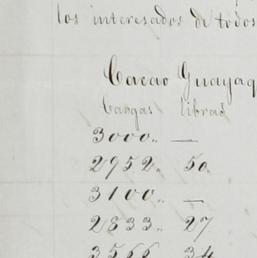 los interesados de todos
Cacao Guayaq
Cargas libras
3000,, —
2952,, 50
3100,, —
2833,, 27
3566 34